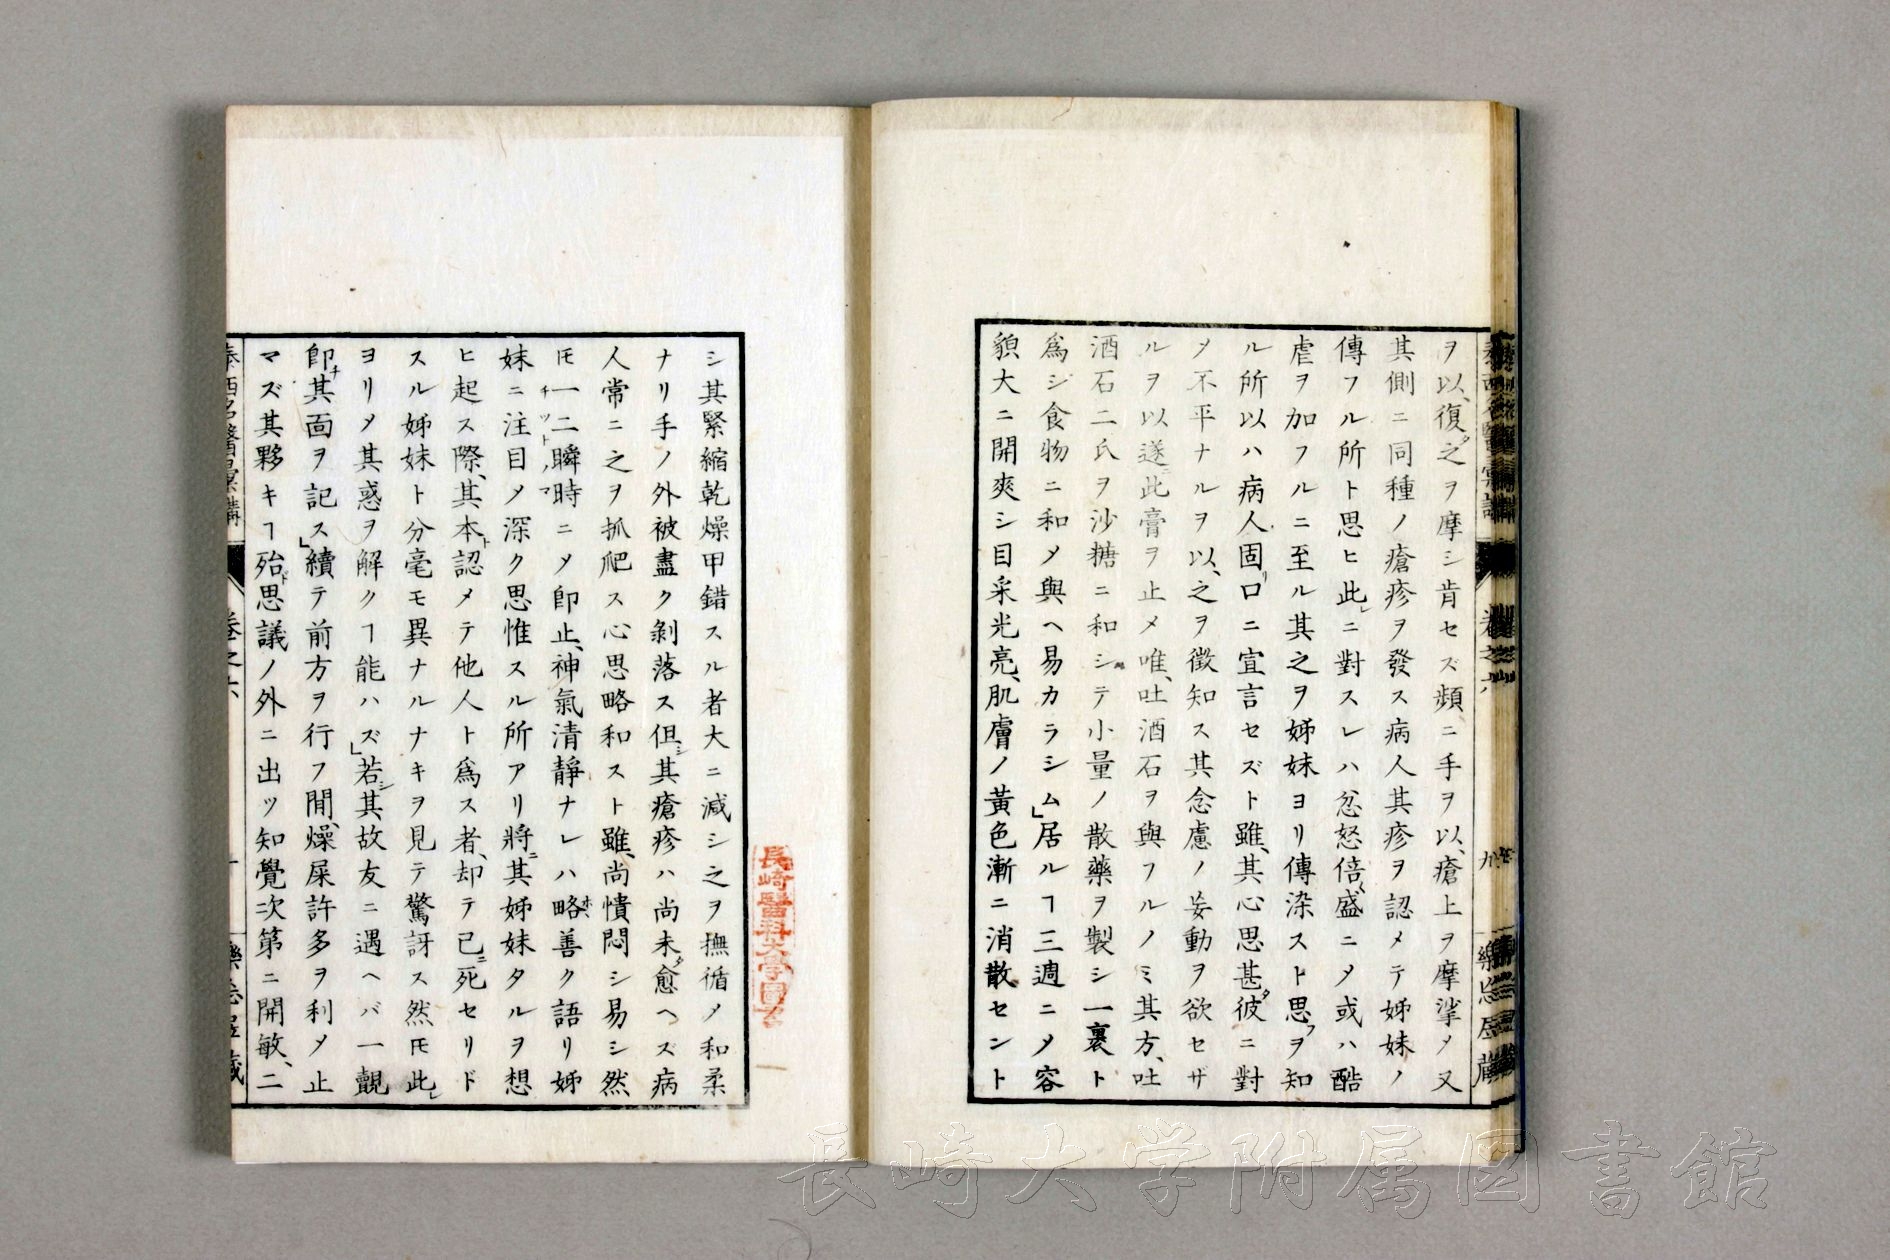 ヲ以、復タ之ヲ摩シ肯セズ頻ニ手ヲ以、瘡上ヲ摩挲メ又
其側ニ同種ノ瘡疹ヲ發ス病人其疹ヲ認メテ姊妹ノ
傳フル所ト思ヒ此レニ對スレハ忿怒倍〻盛ニメ或ハ酷
虐ヲ加フルニ至ル其之ヲ姊妹ヨリ傳染スト思フヲ知
ル所以ハ病人固リ口ニ宣言セズト雖、其心思甚タ彼ニ對
メ不平ナルヲ以、之ヲ徵知ス其念慮ノ妄動ヲ欲セザ
ルヲ以遂ニ此膏ヲ止メ唯、吐酒石ヲ與フルノミ其方、吐
酒石二氏ヲ沙糖ニ和シテ小量ノ散藥ヲ製シ一裹ト
為シ食物ニ和メ與ヘ易カラシム」居ルヿ三週ニメ容
貌大ニ開爽シ目采光亮、肌膚ノ黃色漸ニ消散セント
卷之六
九
シ其緊縮乾燥甲錯スル者大ニ減シ之ヲ撫循メ和柔
ナリ手ノ外被盡ク剝落ス但シ其瘡疹ハ尚未タ愈ヘズ病
人常ニ之ヲ抓爬ス心思略和スト雖、尚憒悶シ易シ然
モ一二瞬時ニメ卽止、神氣清靜ナレハ略ホ善ク語リ姊
チツトノマ
妹ニ注目メ深ク思惟スル所アリ將ニ其姊妹タルヲ想
ヒ起ス際、其本ト認メテ他人ト為ス者、却テ已ニ死セリド
スル姊妹ト分毫モ異ナルナキヲ見テ驚訝ス然モ此レ
ヨリメ其惑ヲ解クヿ能ハズ」若シ其故友ニ遇ヘバ一覿
卽チ其面ヲ記ス」續テ前方ヲ行フ間、燥屎許多ヲ利メ止
マズ其夥キヿ殆ド思議ノ外ニ出ツ知覺次第ニ開敏、二
泰西名醫彙講
卷之六
長崎醫科大学圖書
長崎大学附属図書館